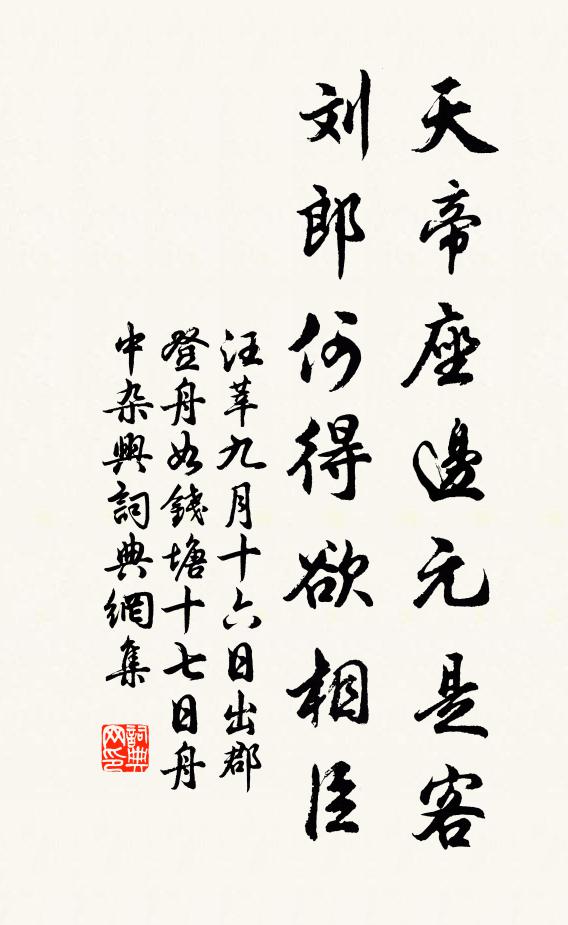 天帝座邊元是客
刘郎何得欲相臣
汪莘九月十六日出郡
登舟如錢塘十七日舟
中杂興詞典網集
詞典网印